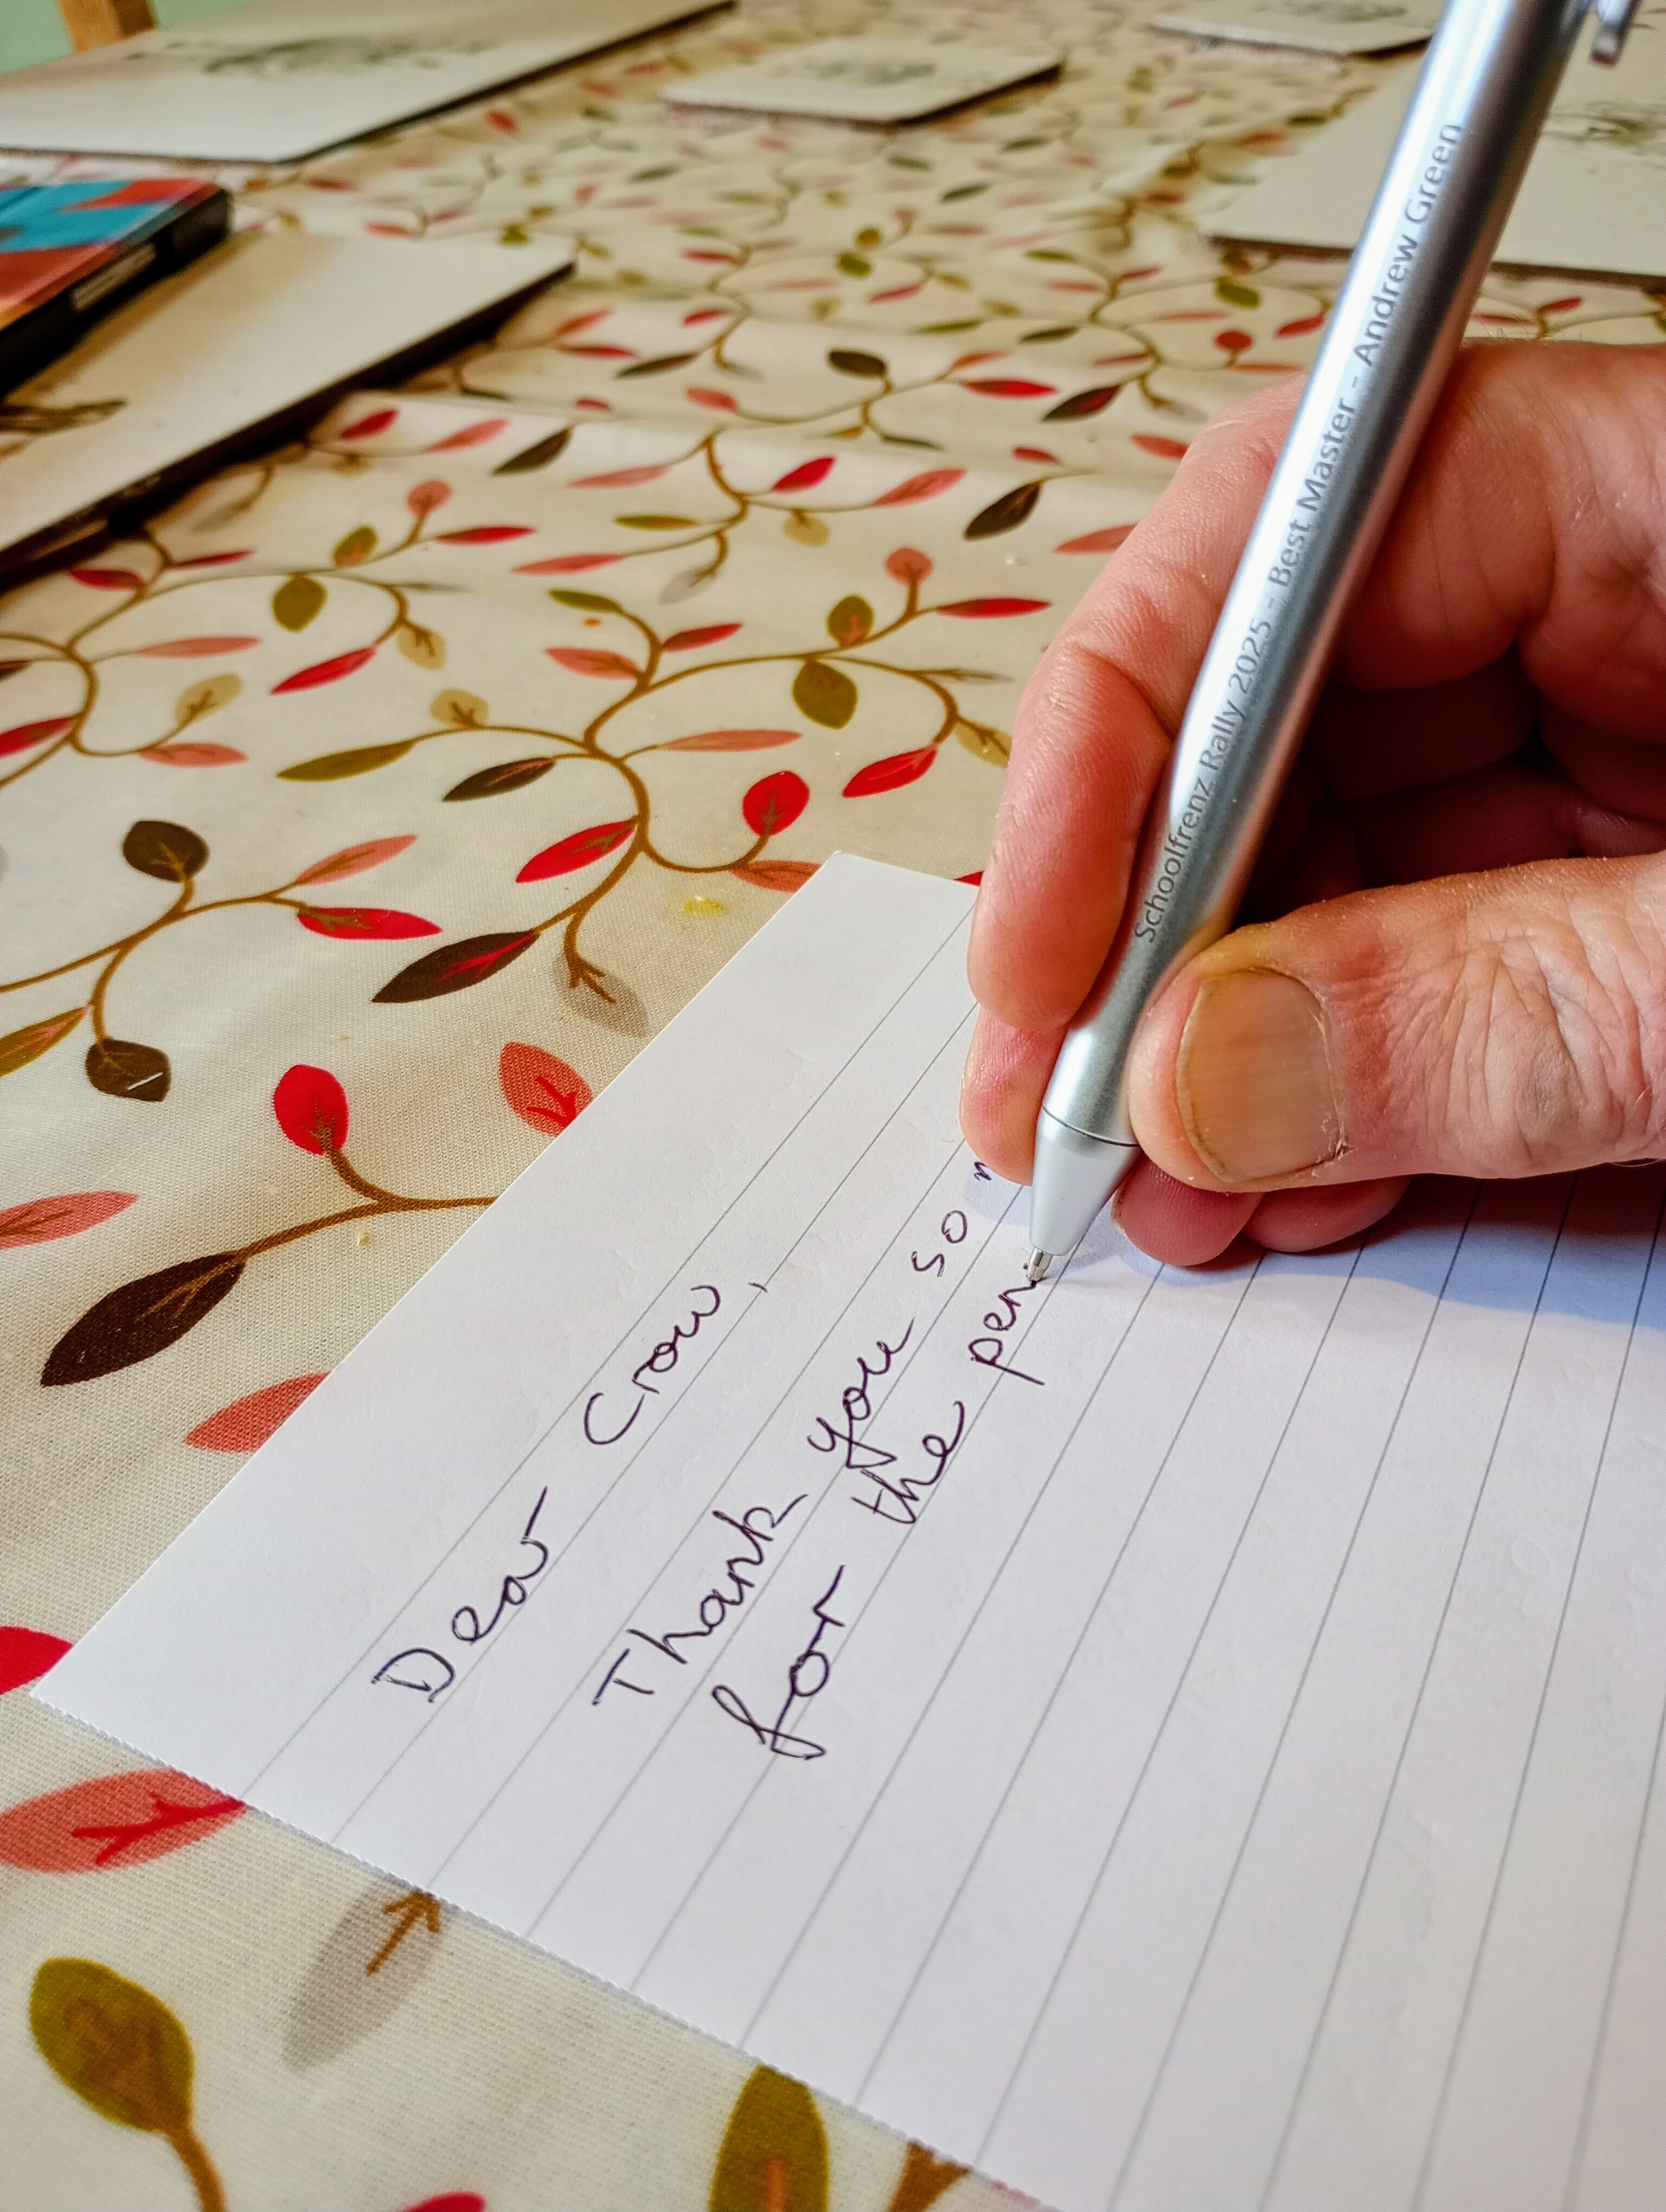 Schoolfrenz Rally 2025 - Best Master - Andrew Green
Dear Crow,
Thank you so
for the pen